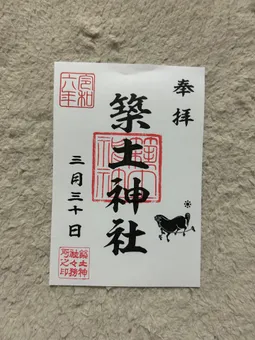 奉拝
築土神社
三月三十日
令和
六年
築土神
社々務
所之印